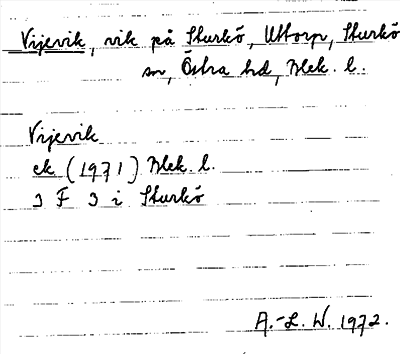 Vijevik, vik på Sturkö, Uttorp, Sturkö
sn, Östra hd, Blek. l.
Vijevik
ek (1971) Blek. l.
3 F 3 i Sturkö
A.-L. W. 1972.